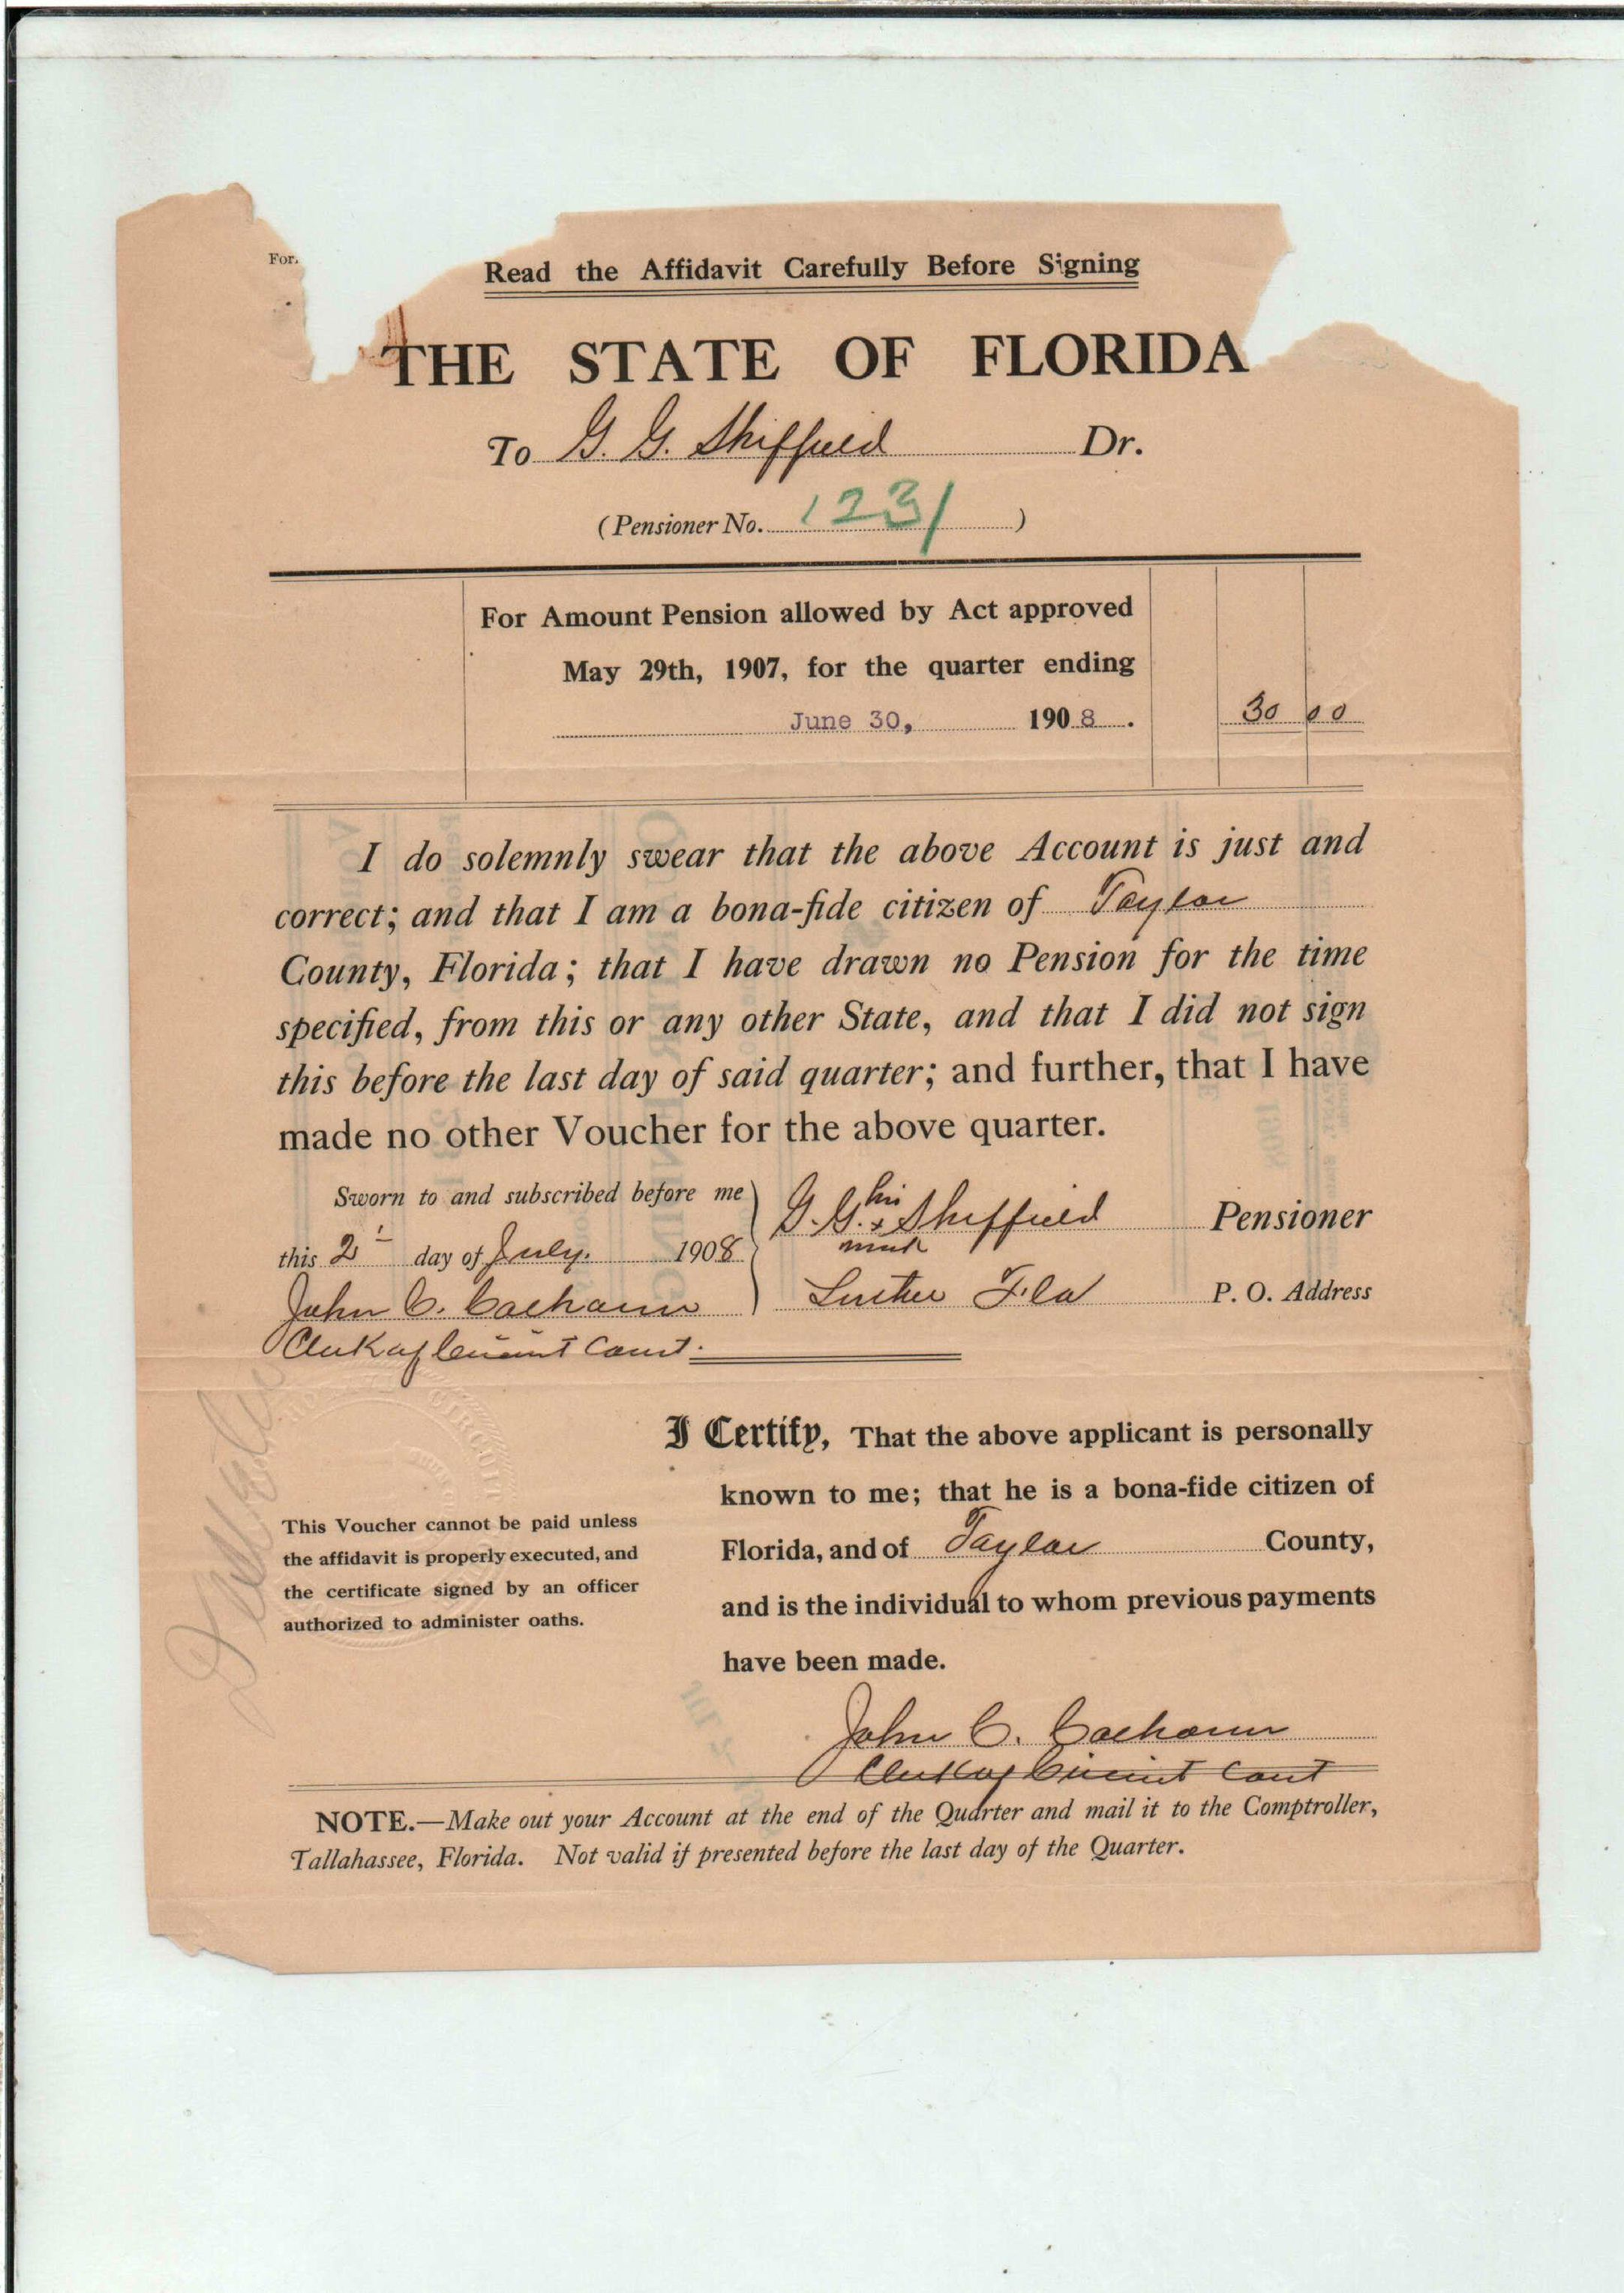 For.
Read the Affidavit Carefully Before Signing
THE STATE OF FLORIDA
To G. G. Sheffield Dr.
(Pensioner No. 1231 )
For Amount Pension allowed by Act approved
May 29th, 1907, for the quarter ending
June 30, 1908. 30 00
I do solemnly swear that the above Account is just and
correct; and that I am a bona-fide citizen of Taylor
County, Florida; that I have drawn no Pension for the time
specified, from this or any other State, and that I did not sign
this before the last day of said quarter; and further, that I have
made no other Voucher for the above quarter.
Sworn to and subscribed before me
this 2 day of July. 1908
John C. Calhoun
Clerk of Circuit Court.
his
G. G. x Sheffield Pensioner
mark
Fla P. O. Address
I Certify, That the above applicant is personally
known to me; that he is a bona-fide citizen of
Florida, and of Taylor County,
and is the individual to whom previous payments
have been made.
This Voucher cannot be paid unless
the affidavit is properly executed, and
the certificate signed by an officer
authorized to administer oaths.
John C. Calhoun
Clerk of Circuit Court
NOTE.—Make out your Account at the end of the Quarter and mail it to the Comptroller,
Tallahassee, Florida. Not valid if presented before the last day of the Quarter.